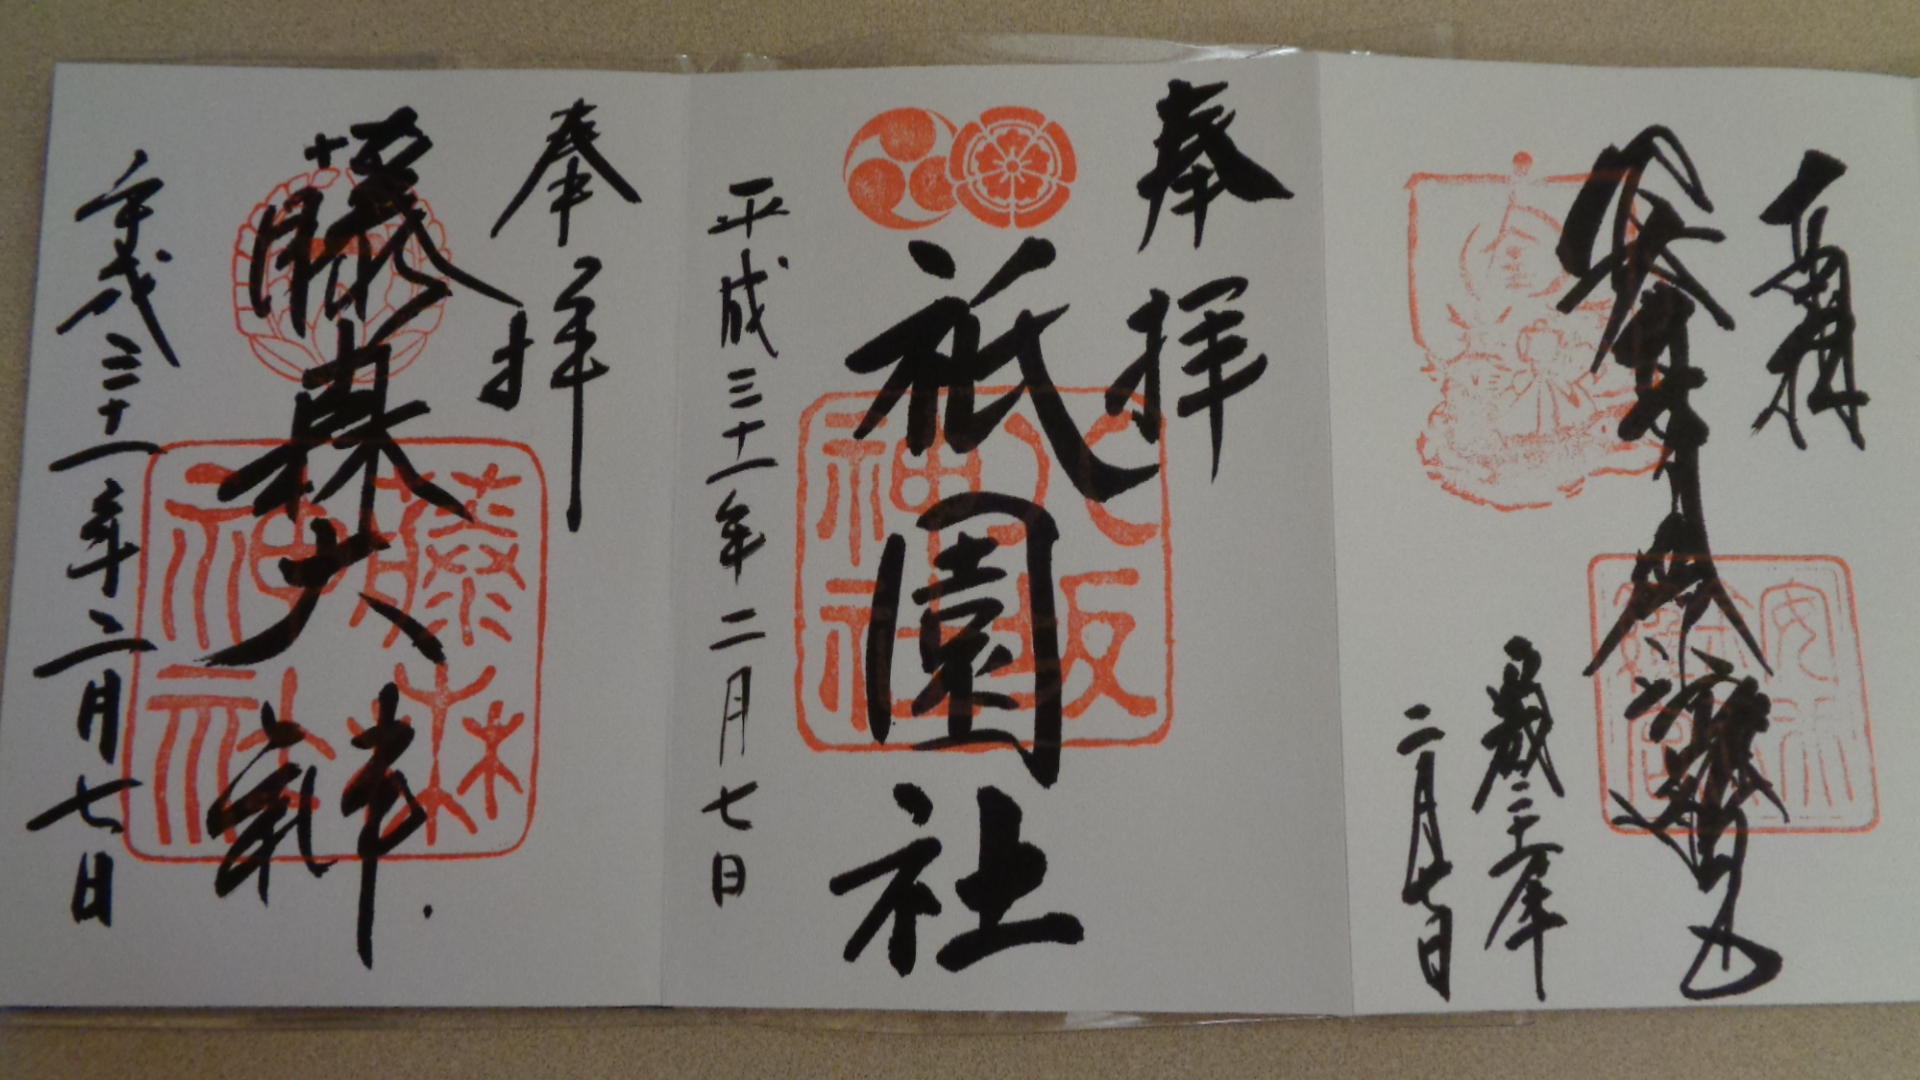 奉拝
金
安井
平成三十一年
二月七日
奉拝
祇園社
八坂
神社
平成三十一年二月七日
奉拝
藤森大神
藤森
神社
平成三十一年二月七日